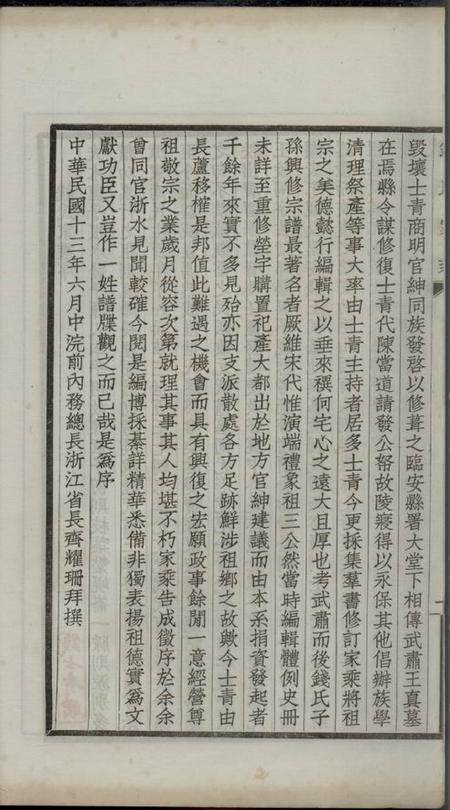 毀壞士青商明官紳同族發啓以修葺之臨安縣署大堂下相傳武肅王真墓
在焉縣令謀修復士青代陳當道請發公帑故陵寢得以永保其他倡辦族學
清理祭產等事大率由士青主持者居多士青今更採集羣書修訂家乘將祖
宗之美德懿行編輯之以垂來禩何宅心之遠大且厚也考武肅而後錢氏子
孫興修宗譜最著名者厥維宋代惟演端禮象祖三公然當時編輯體例史冊
未詳至重修塋宇購置祀產大都出於地方官紳建議而由本系捐資發起者
千餘年來實不多見殆亦因支派散處各方足跡鮮涉祖鄉之故歟今士青由
長蘆移權是邦值此難遇之機會而具有興復之宏願政事餘閒一意經營尊
祖敬宗之業歲月從容次第就理其事其人均堪不朽家乘告成徵序於余余
曾同官浙水見聞較確今閱是編博採綦詳精華悉備非獨表揚祖德實爲文
獻功臣又豈作一姓譜牒觀之而已哉是爲序
中華民國十三年六月中浣前內務總長浙江省長齊耀珊拜撰